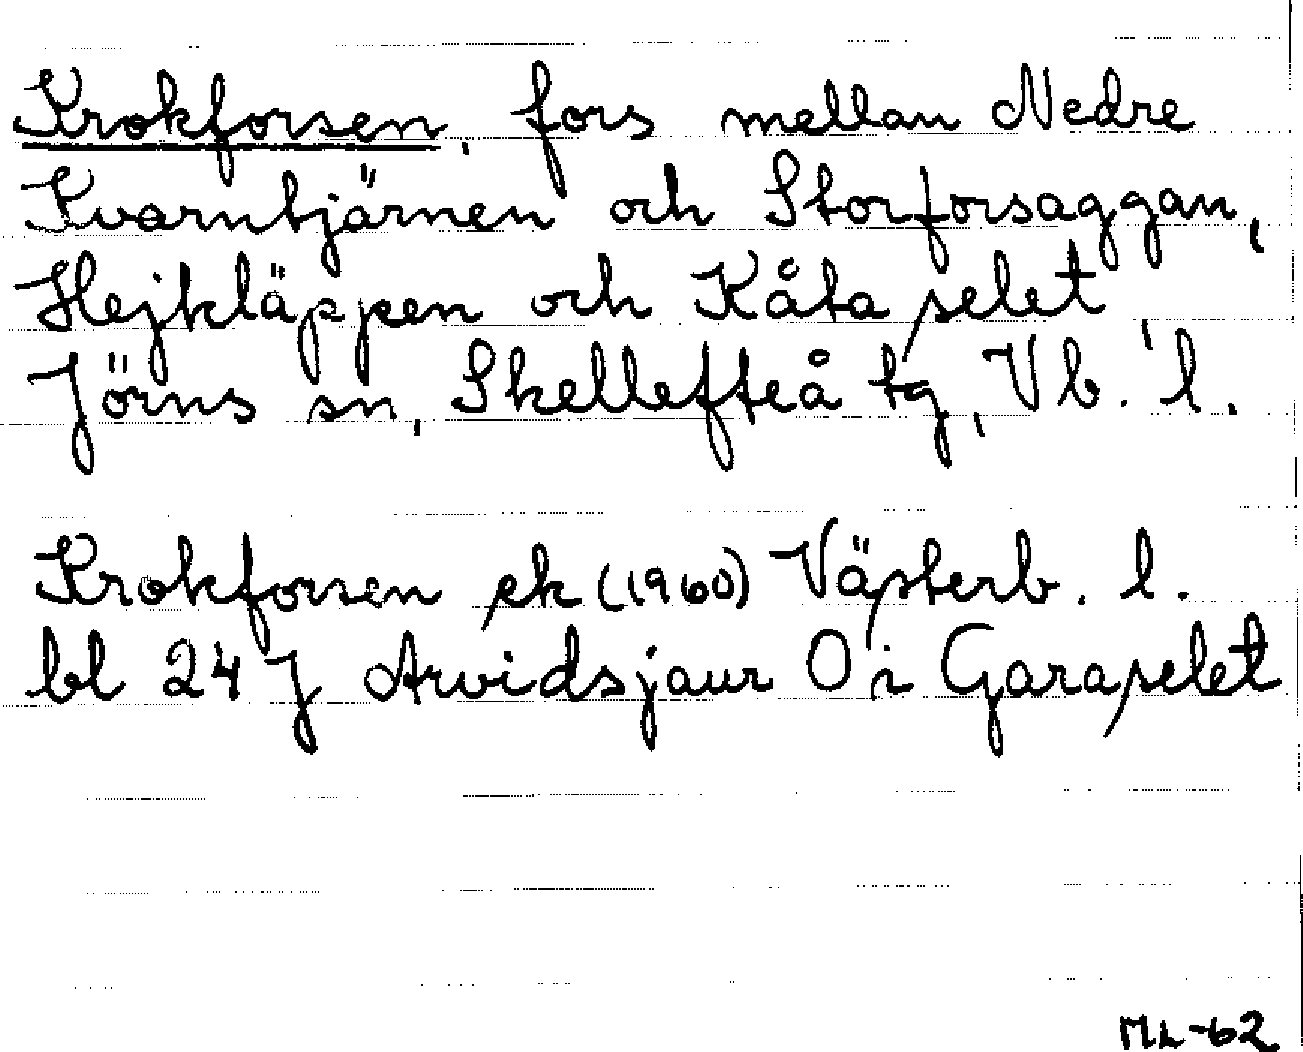 Krokforsen, fors mellan Nedre
Kvarntjärnen och Storforsaggan,
Hejkläppen och Kåtaselet,
Jörns sn, Skellefteå tg, Vb. l.
Krokforsen ek (1960) Västerb. l.
bl 24 J Arvidsjaur O i Garaselet
ML-62